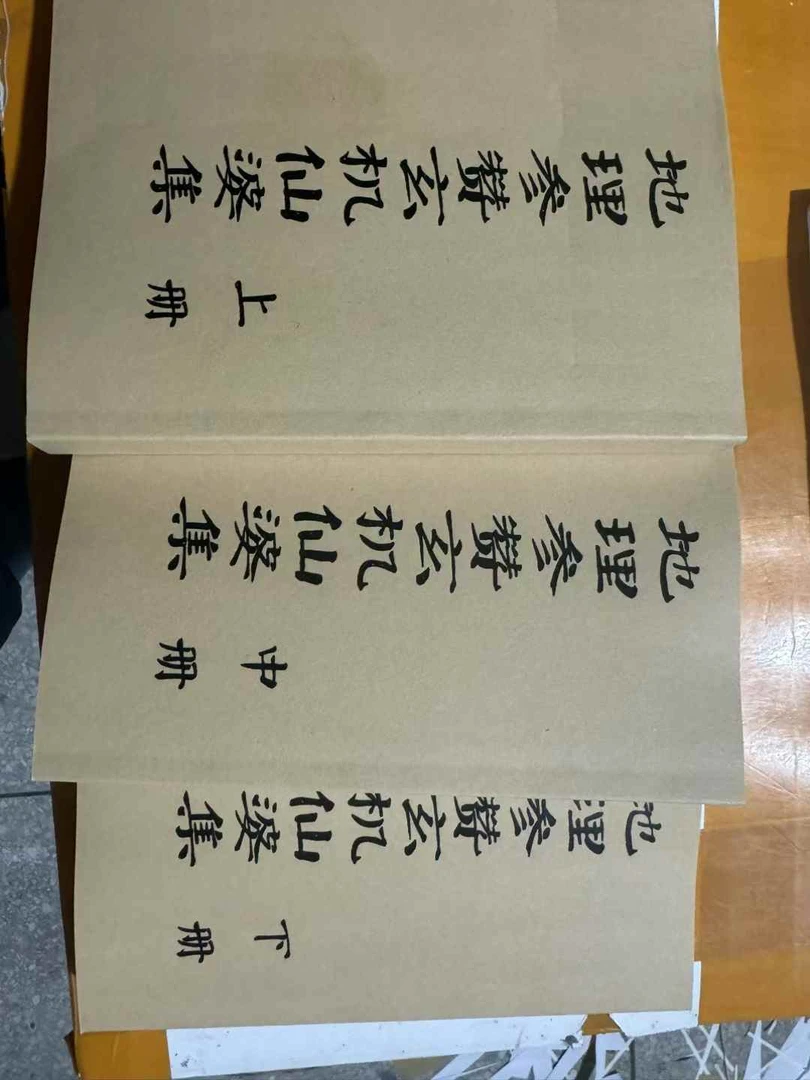 地理参赞玄机仙婆集
上册
地理参赞玄机仙婆集
中册
地理参赞玄机仙婆集
下册